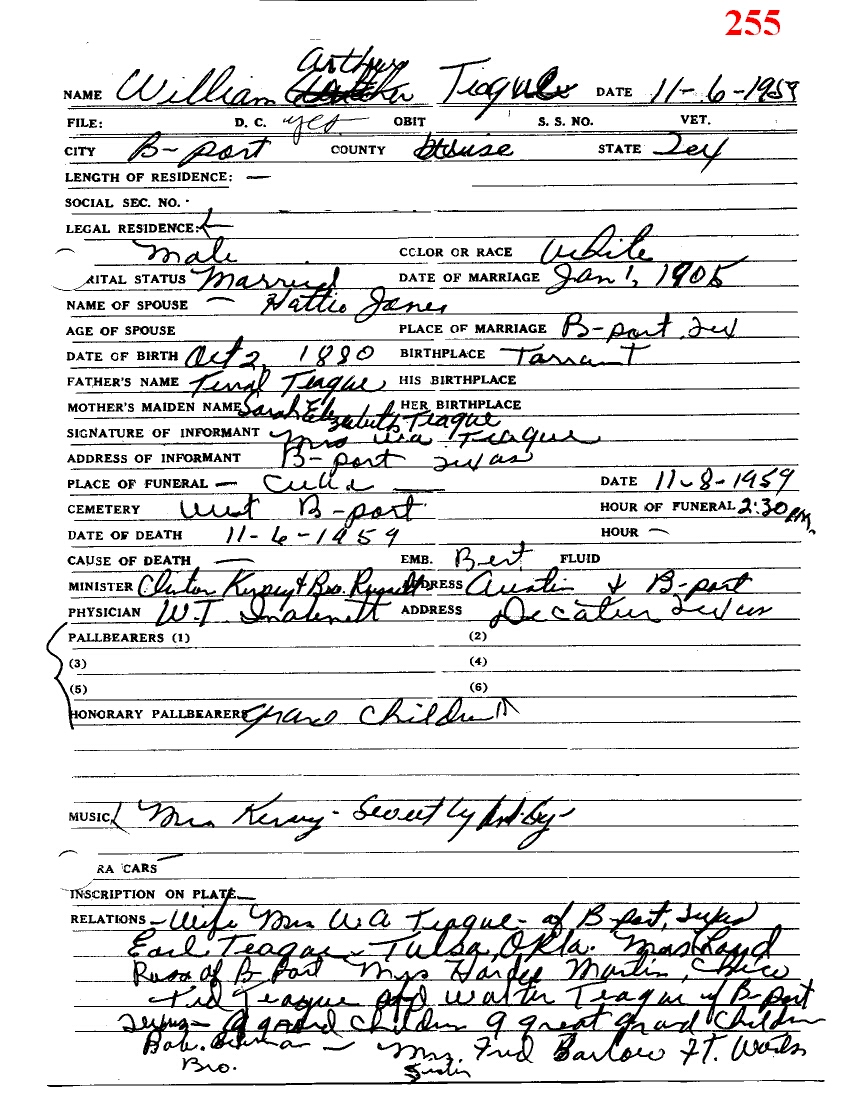 255
Arthur
NAME William Teague DATE 11-6-1959
FILE: D. C. yes OBIT S. S. NO. VET.
CITY B-port COUNTY Wise STATE Tex
LENGTH OF RESIDENCE: —
SOCIAL SEC. NO.
LEGAL RESIDENCE:
Male COLOR OR RACE White
RITAL STATUS Married DATE OF MARRIAGE Jan 1, 1905
NAME OF SPOUSE — Hattie Jones
AGE OF SPOUSE PLACE OF MARRIAGE B-port Tex
DATE OF BIRTH Oct 2, 1880 BIRTHPLACE Tarrant
FATHER'S NAME Teague HIS BIRTHPLACE
MOTHER'S MAIDEN NAME Sarah Elizabeth Teague HER BIRTHPLACE
SIGNATURE OF INFORMANT Mrs WA Teague
ADDRESS OF INFORMANT B-port Texas
PLACE OF FUNERAL — DATE 11-8-1959
CEMETERY West B-port HOUR OF FUNERAL 2:30 PM.
DATE OF DEATH 11-6-1959 HOUR —
CAUSE OF DEATH — EMB. Bert FLUID
MINISTER & Bro. ADDRESS Austin & B-port
PHYSICIAN W.T. ADDRESS Decatur Texas
PALLBEARERS (1) (2)
(3) (4)
(5) (6)
HONORARY PALLBEARERS Grand Children
MUSIC Mrs
RA CARS
INSCRIPTION ON PLATE —
RELATIONS — Wife Mrs W.A Teague - of B-port, Texas
Earl Teague - Tulsa, Okla. Mrs Loyd
Ross of B-Port Mrs Hardee Martin, Chico
Ted Teague and Walter Teague of B-port
Texas - 9 grand Children 9 great grand Children
— Mrs. Fred Barlow Ft. Worth
Bro. Sister